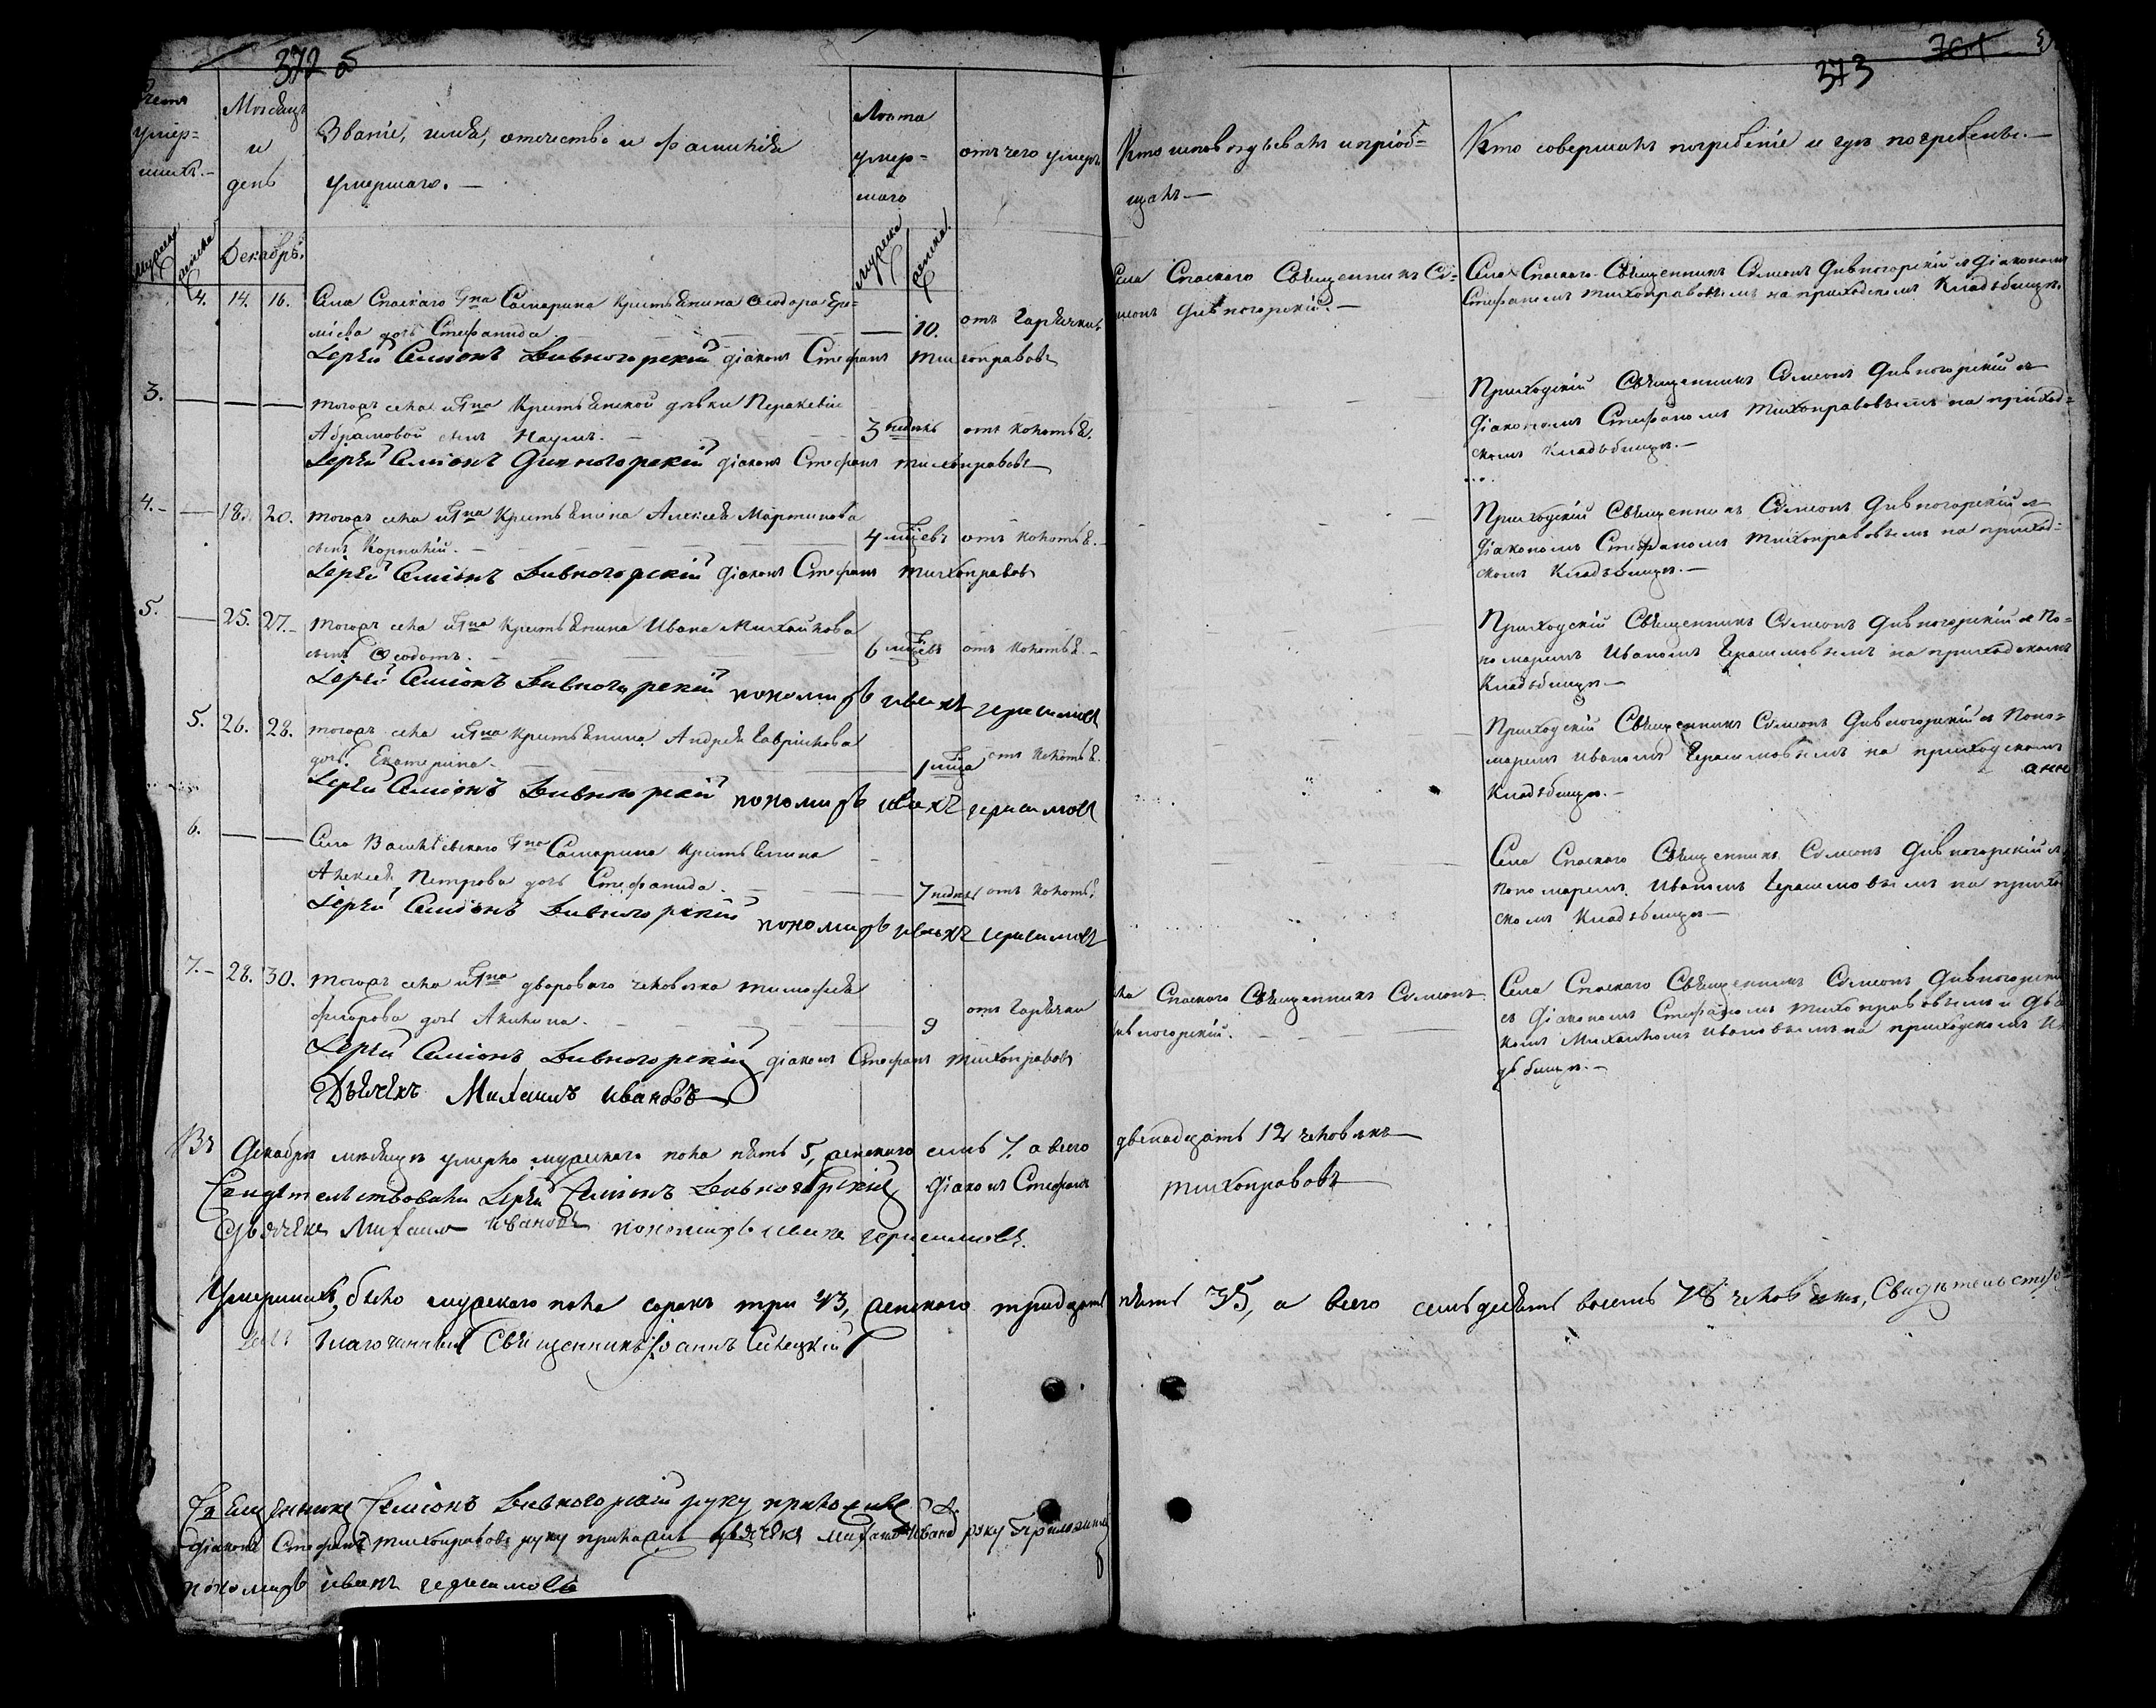 372 б
373
761
Счетъ умер=шихъ.—
Мѣсяцъ и день
Званіе, имя, отечество и фамилія умершаго.—
Лѣта умер=шаго
отъ чего умеръ
Кто исповѣдывалъ и пріоб=щалъ—
Кто совершалъ погребеніе и гдѣ погребенъ.—
мужеска
женска
Декабрь.
мужеска
женска.
4. 14. 16. Села Спаскаго Гна Самарина Крестьянина Ѳеодора Ере=
мѣева дочь Стефанида — 10. отъ Горячки
Села Спаскаго Священникъ Си=
меонъ Дивногорскій.—
Села Спаскаго Священникъ Симеонъ Дивногорскій съ Діакономъ
Стефаномъ Тихонравовымъ на приходскомъ Кладбищѣ.
Іерей Симіонъ Дивногорскій діаконъ Стефанъ Тихонравовъ
3. — — — тогожъ села и Гна Крестьянской дѣвки Параскевіи
Абрамовой сынъ Наумъ. — 3 недѣль отъ Колотья.
Приходскій Священникъ Симеонъ Дивногорскій съ
Діакономъ Стефаномъ Тихонравовымъ на приход=
скомъ Кладбищѣ.—
Іерей Симіонъ Дивногорскій діаконъ Стефанъ Тихонравовъ
4. — 18. 20. тогожъ села и Гна Крестьянина Алексея Мартинова
сынъ Корнилій. — 4 мцевъ отъ Колотья.—
Приходскій Священникъ Симеонъ Дивногорскій съ
Діакономъ Стефаномъ Тихонравовымъ на приход=
скомъ Кладбищѣ.—
Іерей Симіонъ Дивногорскій діаконъ Стефанъ Тихонравовъ
5. — 25. 27. тогожъ села и Гна Крестьянина Ивана Михайлова
сынъ Ѳеодотъ. — 6 мцевъ отъ Колотья.—
Приходскій Священникъ Симеонъ Дивногорскій съ По=
номаремъ Иваномъ Герасимовымъ на приходскомъ
Кладбищѣ.—
Іерей Симіонъ Дивногорскій пономарь иванъ герасимовъ
5. 26. 28. тогожъ села и Гна Крестьянина Андрея Гаврилова
дочь Екатерина. — 1 мца отъ Колотья.
Приходскій Священникъ Симеонъ Дивногорскій съ Поно=
маремъ Иваномъ Герасимовымъ на приходскомъ
Кладбищѣ.—
Іерей Симіонъ Дивногорскій пономарь иванъ герасимовъ
6. — — Села Васильевскаго Гна Самарина Крестьянина
Алексея Петрова дочь Стефанида. — 7 недѣль отъ Колотья
Села Спаскаго Священникъ Симеонъ Дивногорскій съ
Пономаремъ Иваномъ Герасимовымъ на приход
скомъ Кладбищѣ—
Іерей Симіонъ Дивногорскій пономарь иванъ герасимовъ
7.— 28. 30. тогожъ села и Гна двороваго человѣка Тимофея
Фторова дочь Акилина. — 9 отъ Горячки
ла Спаскаго Священникъ Симеонъ
ивногорскій.
Села Спаскаго Священникъ Симеонъ Дивногорскі
съ Діакономъ Стефаномъ Тихонравовымъ и Дья
комъ Михаиломъ Ивановымъ на приходскомъ Кл
дбищѣ.—
Іерей Симіонъ Дивногорскій діаконъ Стефанъ Тихонравовъ
Дьячекъ Михаилъ Ивановъ
Въ Декабрѣ мѣсяцѣ умерло мужескаго пола пять 5, женскаго семь 7. а всего двенадцать 12 человѣкъ—
Свидѣтелствовали Іерей Симіонъ Дивногорскій діаконъ Стефанъ Тихонравовъ
Дьячекъ Михаило Ивановъ пономарь иванъ герасимовъ.
Умершихъ было мужскаго пола сорокъ три 43, женскаго тридцать пять 35, а всего семьдесятъ восемь 78 человѣкъ, Свидѣтельство=
валъ Благочинный Священникъ Іоаннъ
Священникъ Симіонъ Дивногорскій руку приложилъ
діаконъ Стефанъ Тихонравовъ руку приложилъ дьячекъ Михаило Ивановъ руку приложилъ
пономарь иванъ герасимовъ